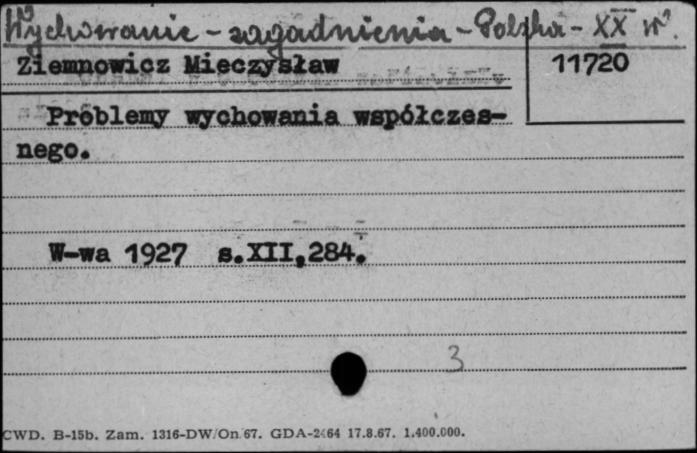 Wychowanie - zagadnienia - Polska - XX w.
Ziemnowicz Mieczysław
11720
Problemy wychowania współczes-
nego.
W-wa 1927 s.XII,284.
3
CWD. B-15b. Zam. 1316-DW/On 67. GDA-2464 17.8.67. 1.400.000.